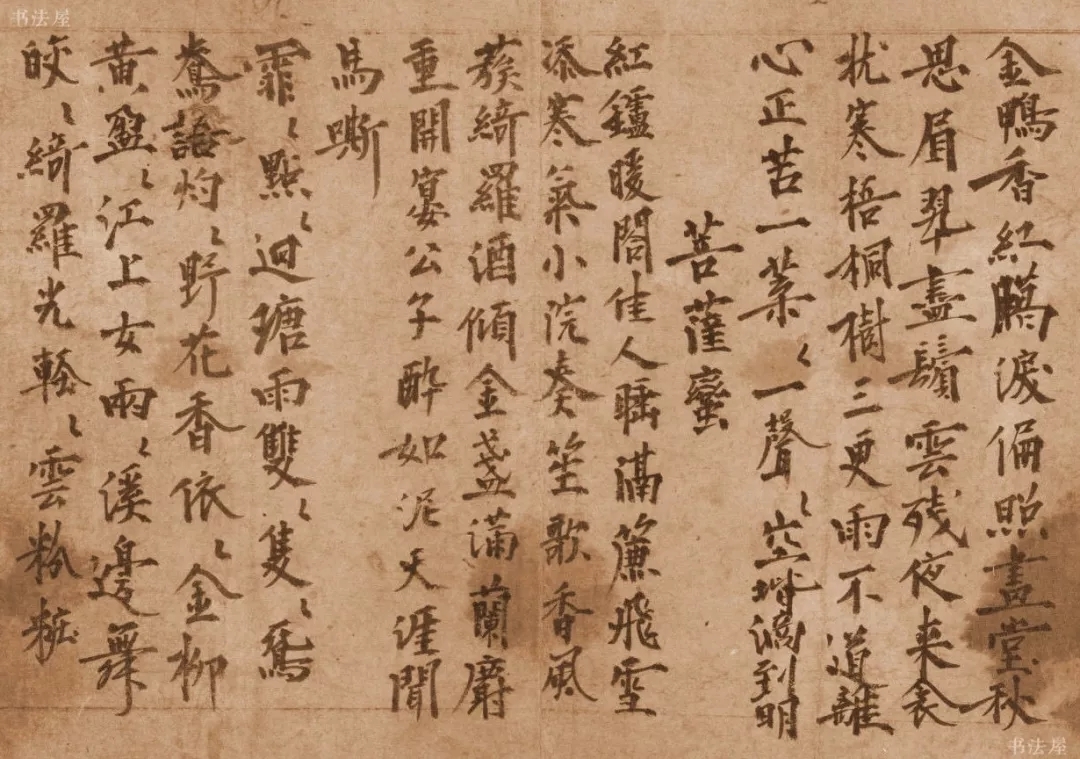 书法屋
金鴨香紅臈淚偏照畫堂秋
思眉翠盡鬢雲残夜来衾
枕寒梧桐樹三更雨不道離
心正苦一葉々一聲々空堦滴到明
菩薩蠻
紅鑪暖閤佳人睡滿簾飛雪
添寒氣小院奏笙歌香風
蔟綺羅酒傾金盞滿蘭麝
重開宴公子醉如泥天涯聞
馬嘶
霏々點々迴塘雨雙々隻々鴛
鴦語灼々野花香依々金柳
黃盈々江上女兩々溪邊舞
皎々綺羅光輕々雲粉粧
书法屋